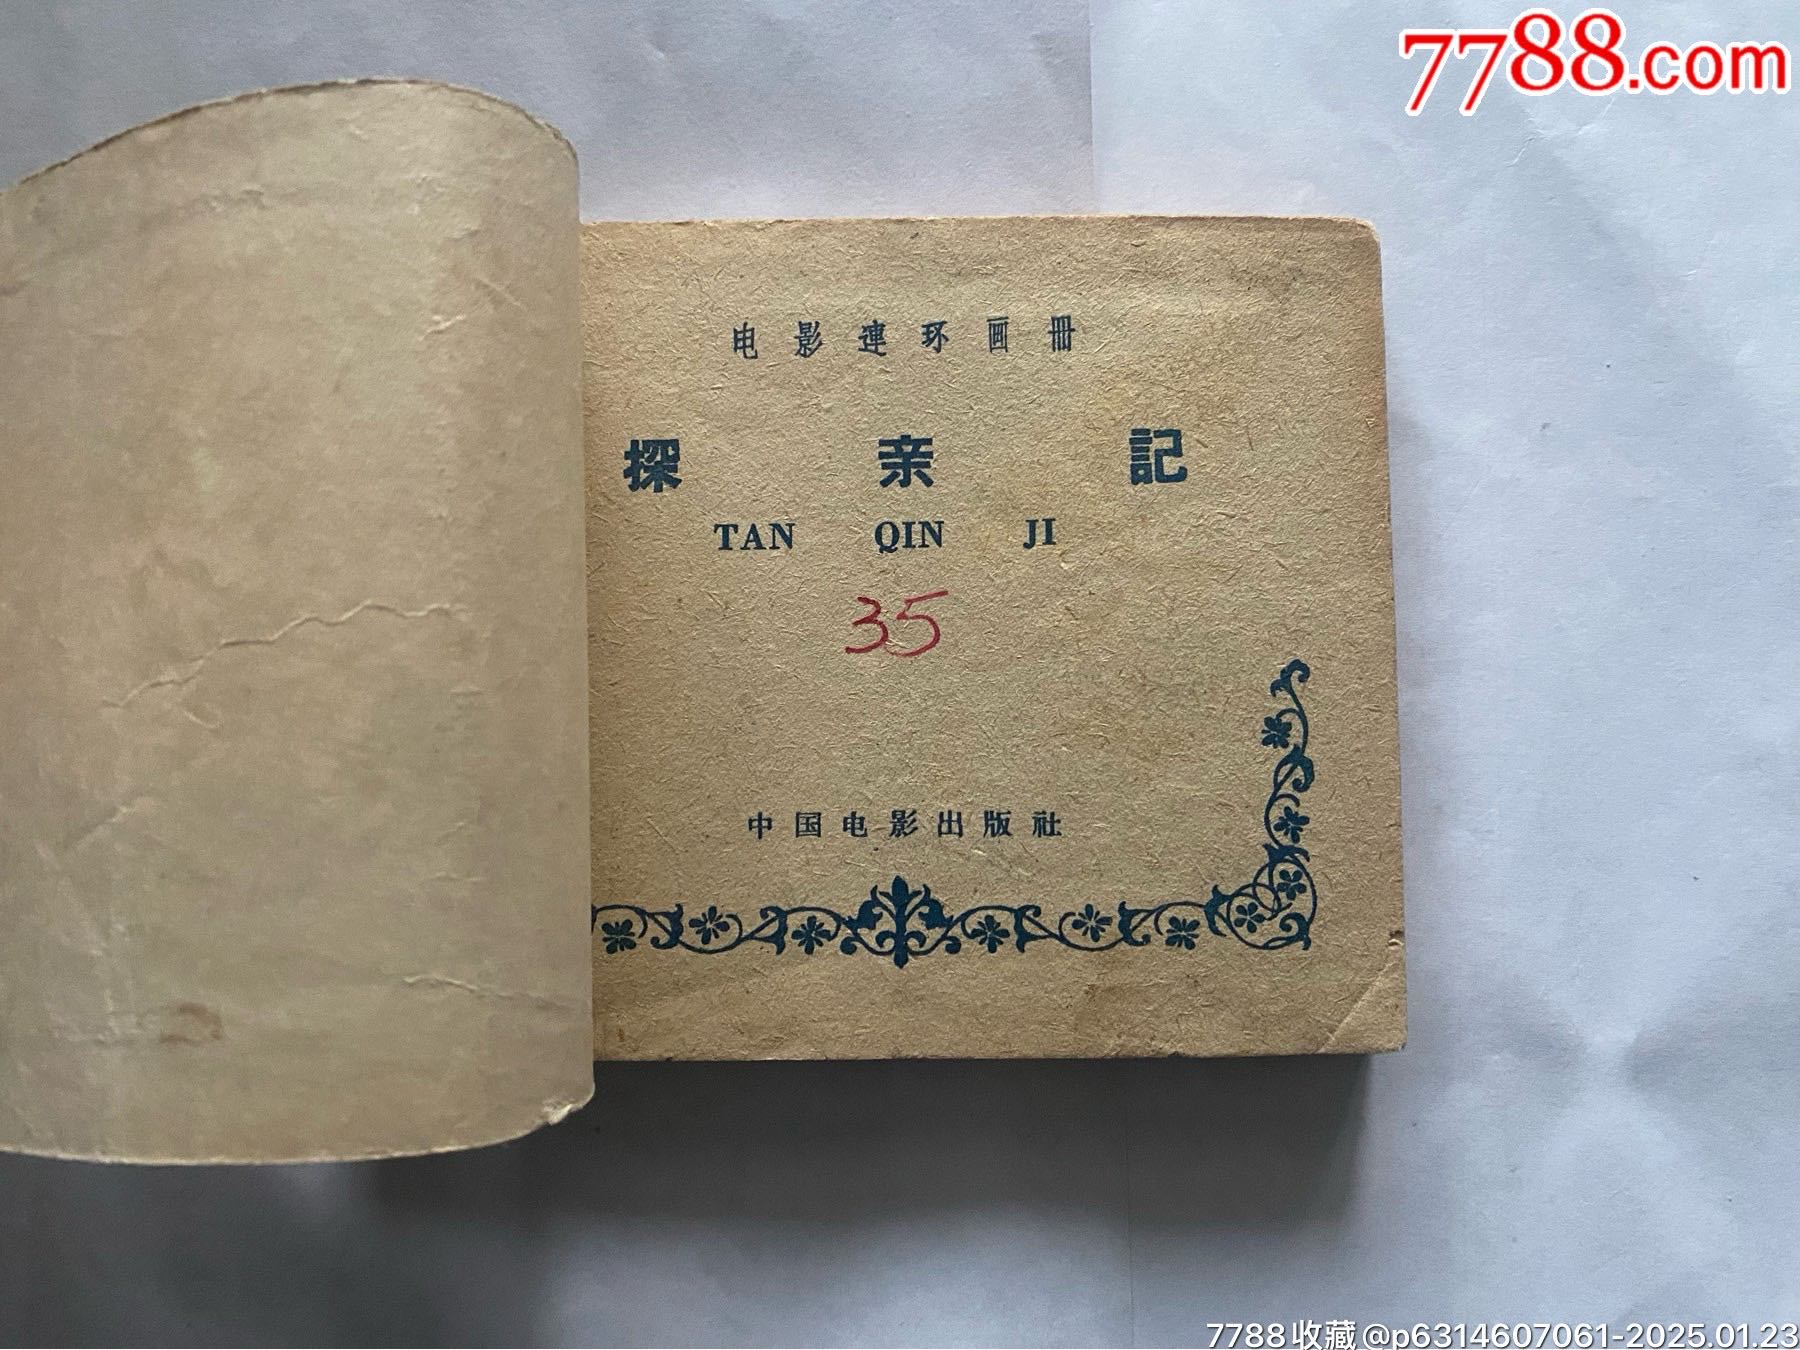 7788.com
电影連环画冊
探亲記
TAN QIN JI
35
中国电影出版社
7788收藏@p6314607061-2025.01.23